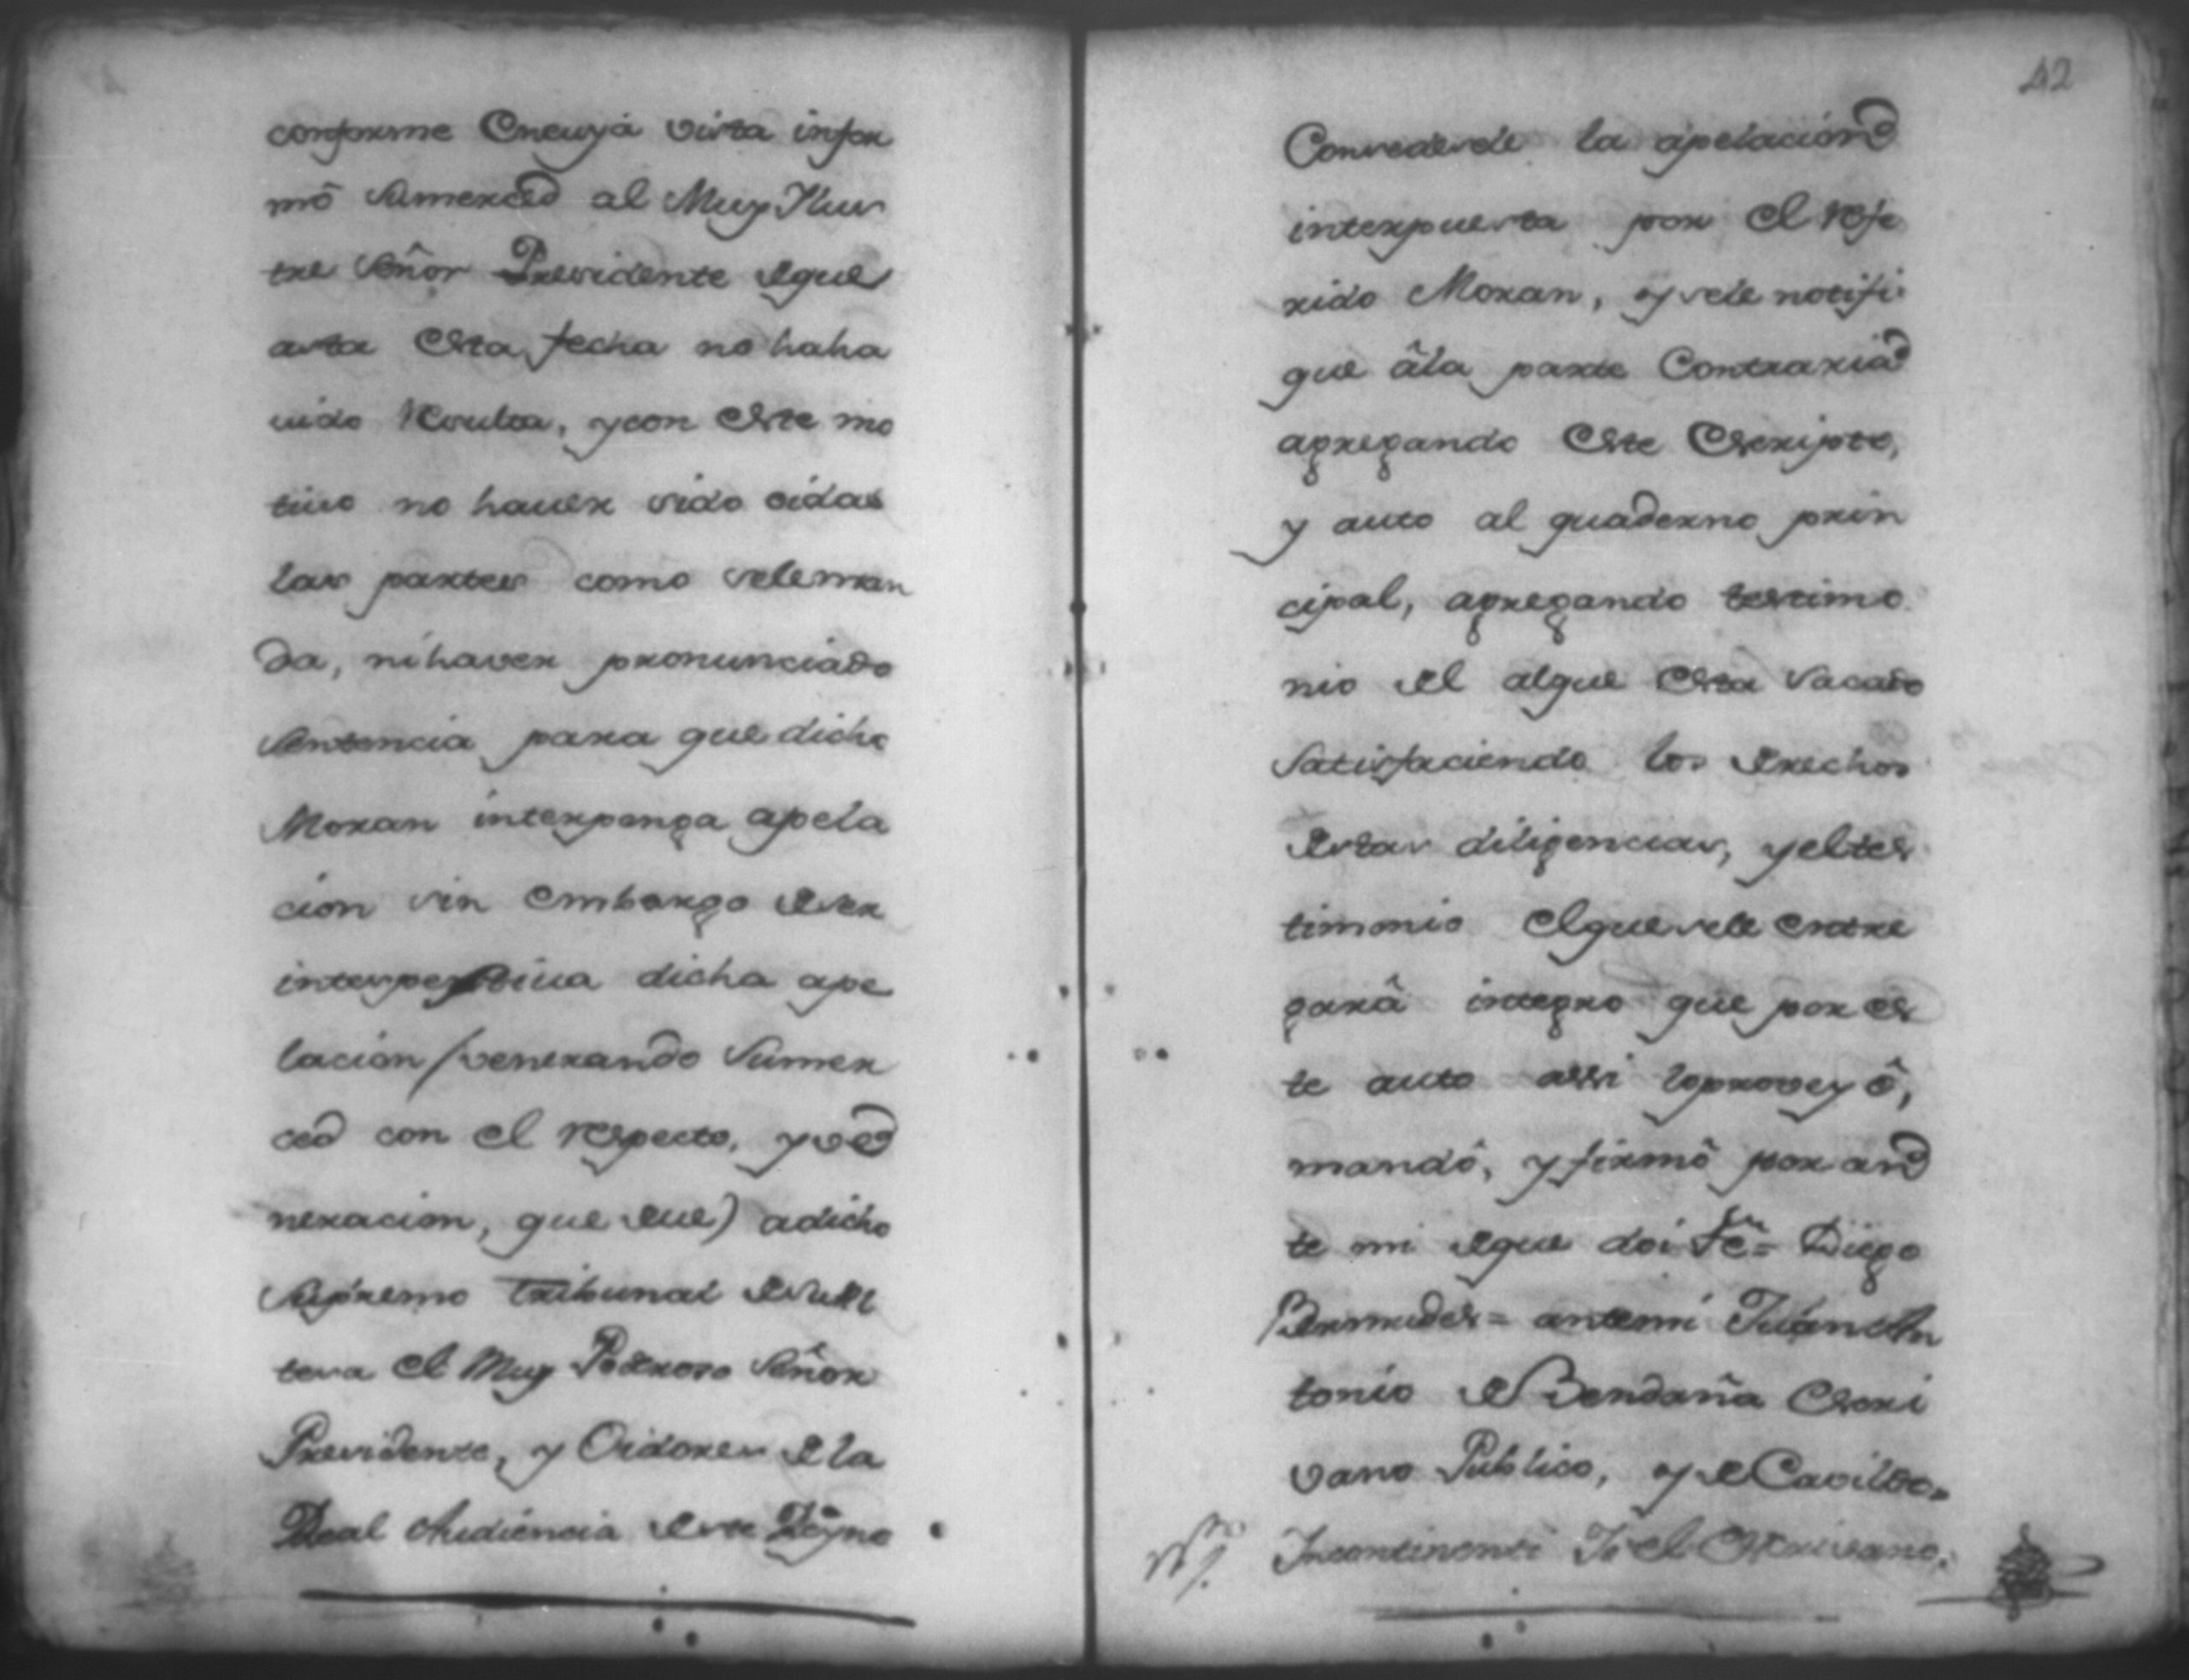 conforme Encuya vista infor
mô Sumerced al Muy Ylus
tre Señor Presidente deque
asta Esta fecha no haha
uido Resulta, ycon Este mo
tiuo no hauer sido oidas
las partes como seleman
da, nihaver pronunciado
Sentencia para que dicho
Moran interponga apela
cion sin embargo deser
intespestiua dicha ape
lacion (venerando Sumer
ced con el respecto, y ve
neracion, que deue) adicho
Supremo tribunal desu Al
teva el Muy Poderoso Señor
Presidente, y Oidores dela
Real Audiencia deste Reyno
42
Consedesele la apelacion
interpuesta por el Refe
rido Moran, y sele notifi
que âla parte Contraria
agregando Este Escripto,
y auto al quaderno prin
cipal, agregando testimo
nio del alque Esta Sacado
Satisfaciendo los derechos
destas diligencias, yeltes
timonio Elquesele Entre
gará integro que por es
te auto assi loproveyô,
mandô, y firmô por an
te mi deque doi Fê = Diego
Bermudes = antemi Juan An
tonio de Bendaña Escri
vano Publico, y de Cavildo.
Incontinenti Yo el Escrivano.